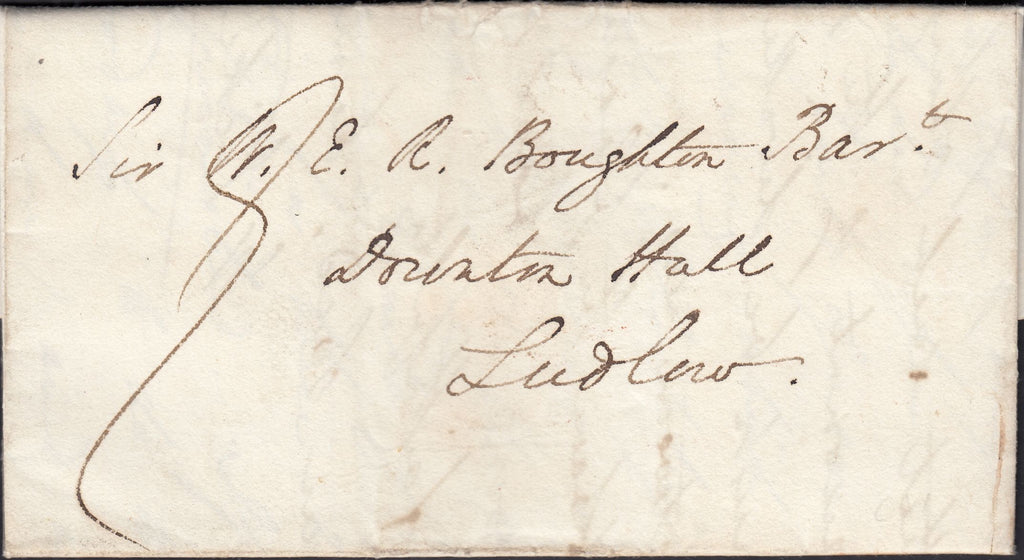 Sir W. E. R. Boughton Bar.t
Downton Hall
Ludlow.